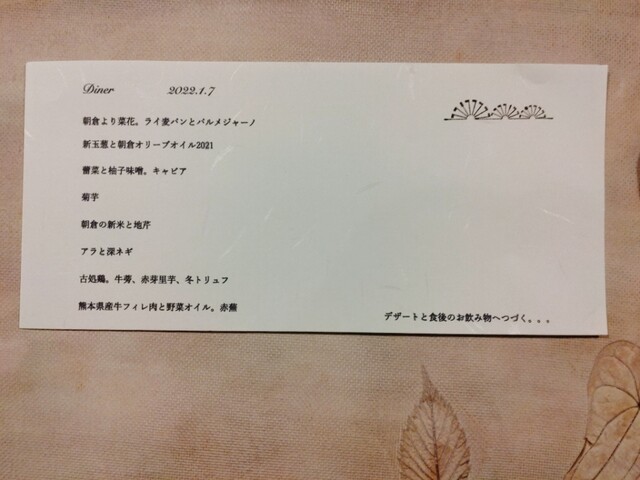 Diner 2022.1.7
朝倉より菜花。ライ麦パンとパルメジャーノ
新玉葱と朝倉オリーブオイル2021
蕾菜と柚子味噌。キャビア
菊芋
朝倉の新米と地芹
アラと深ネギ
古処鶏。牛蒡、赤芽里芋、冬トリュフ
熊本県産牛フィレ肉と野菜オイル。赤蕪
デザートと食後のお飲み物へつづく。。。